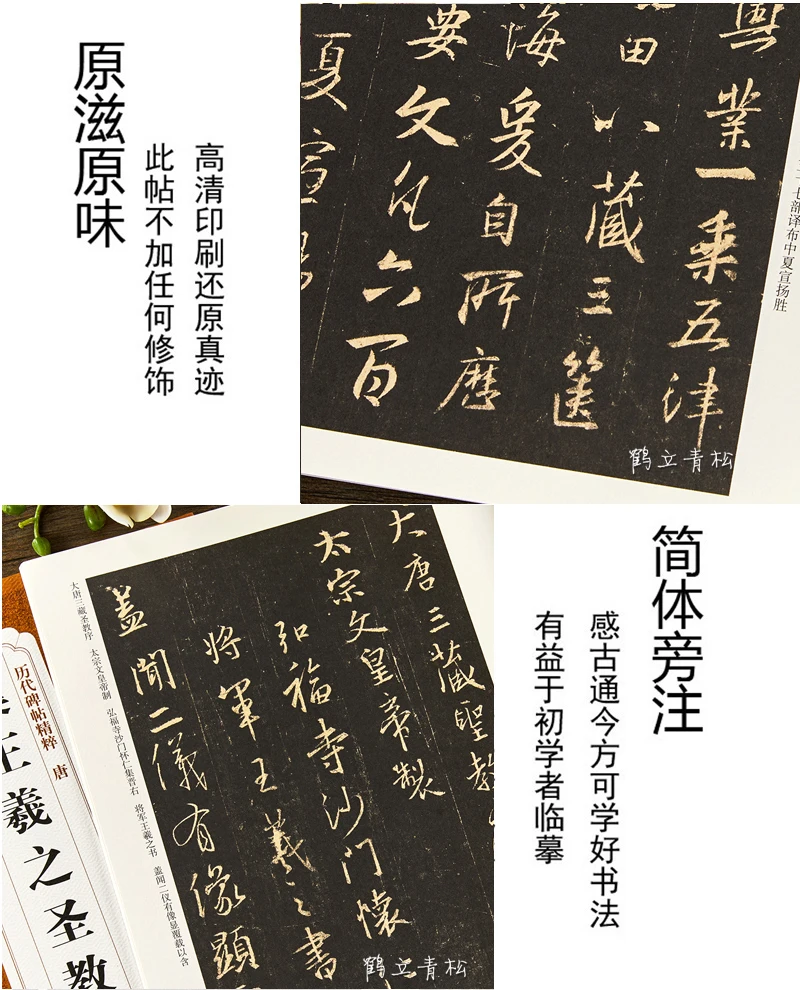 原滋原味
高清印刷还原真迹
此帖不加任何修饰
七部译布中夏宣扬胜
興業一乘五律
田八藏三篋
海爰自所歷
要文凡六百
夏宣
鹤立青松
大唐三藏聖教
太宗文皇帝製
弘福寺沙門懷
將軍王羲之書
蓋聞二儀有像顯
大唐三藏圣教序 太宗文皇帝制 弘福寺沙门怀仁集晋右 将军王羲之书 盖闻二仪有像显覆载以含
历代碑帖精粹 唐
王羲之圣教
鹤立青松
简体旁注
感古通今方可学好书法
有益于初学者临摹